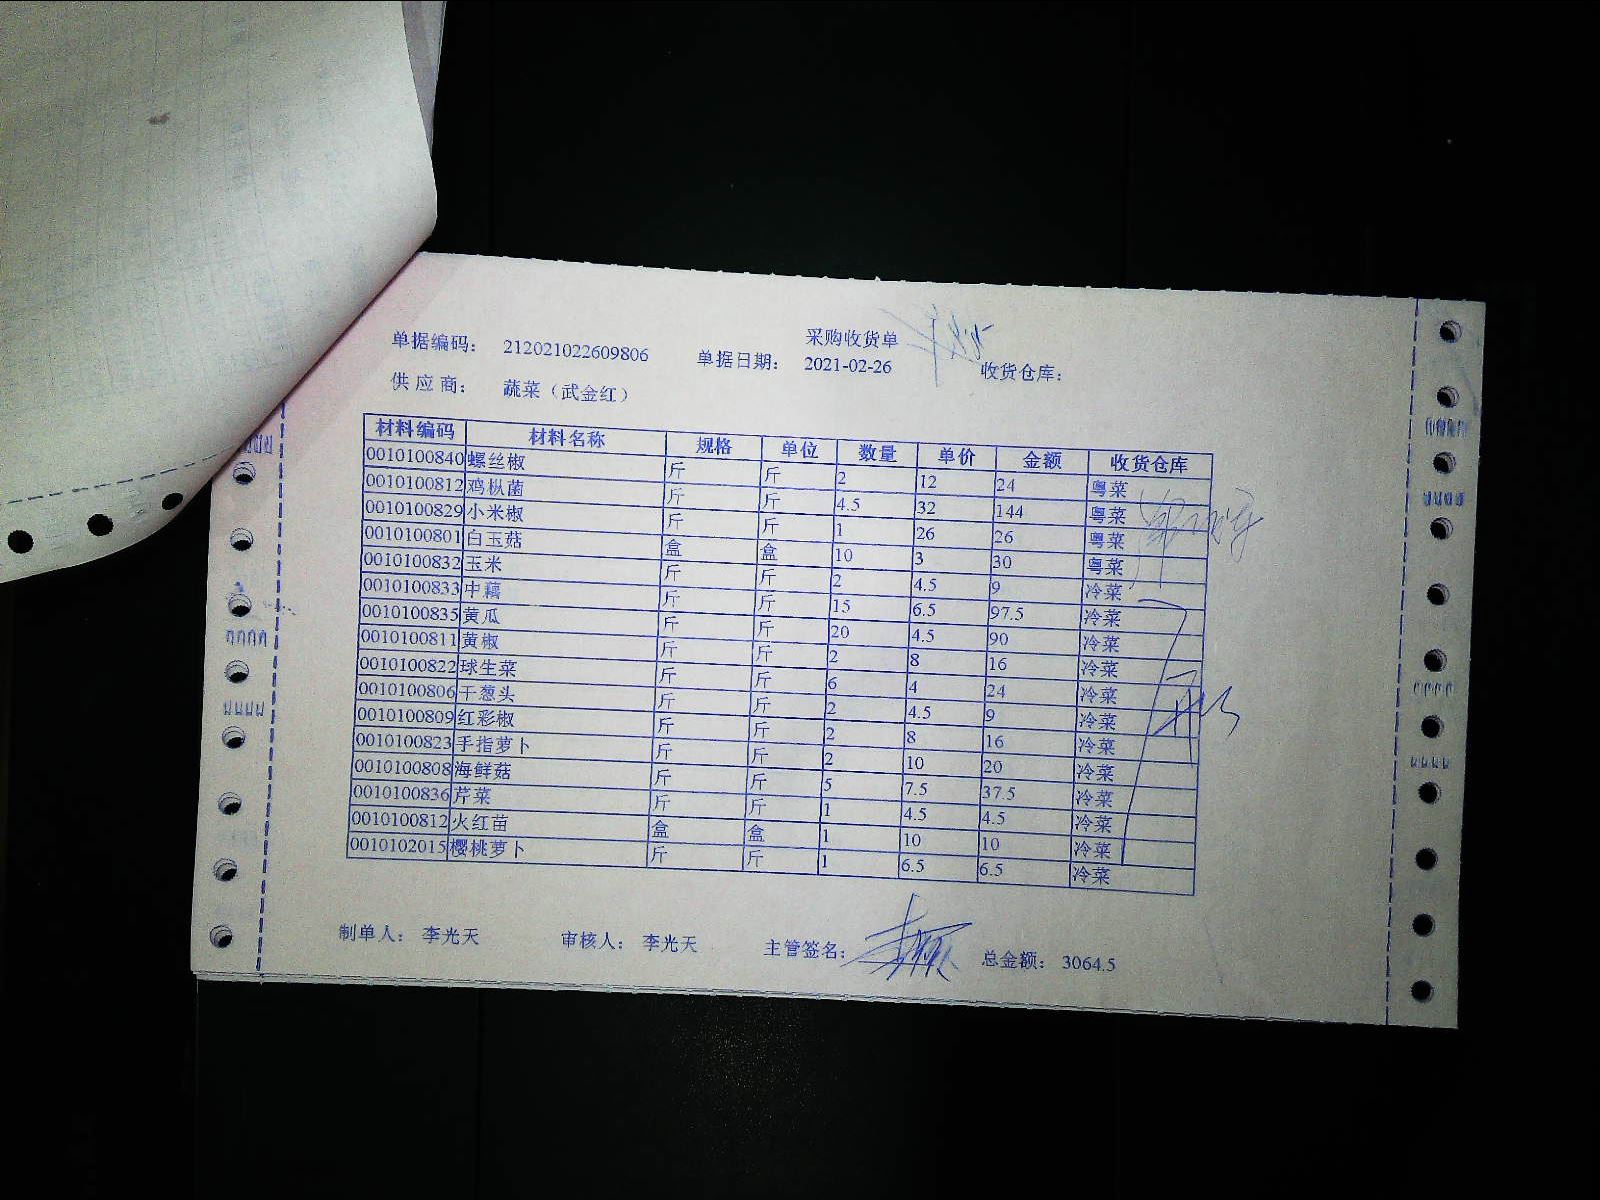 采购收货单
单据编码： 212021022609806 单据日期： 2021-02-26 收货仓库：
供 应 商： 蔬菜（武金红）
材料编码 材料名称 规格 单位 数量 单价 金额 收货仓库
0010100840 螺丝椒 斤 斤 2 12 24 粤菜
0010100812 鸡枞菌 斤 斤 4.5 32 144 粤菜
0010100829 小米椒 斤 斤 1 26 26 粤菜
0010100801 白玉菇 盒 盒 10 3 30 粤菜
0010100832 玉米 斤 斤 2 4.5 9 冷菜
0010100833 中藕 斤 斤 15 6.5 97.5 冷菜
0010100835 黄瓜 斤 斤 20 4.5 90 冷菜
0010100811 黄椒 斤 斤 2 8 16 冷菜
0010100822 球生菜 斤 斤 6 4 24 冷菜
0010100806 干葱头 斤 斤 2 4.5 9 冷菜
0010100809 红彩椒 斤 斤 2 8 16 冷菜
0010100823 手指萝卜 斤 斤 2 10 20 冷菜
0010100808 海鲜菇 斤 斤 5 7.5 37.5 冷菜
0010100836 芹菜 斤 斤 1 4.5 4.5 冷菜
0010100812 火红苗 盒 盒 1 10 10 冷菜
0010102015 樱桃萝卜 斤 斤 1 6.5 6.5 冷菜
制单人： 李光天 审核人： 李光天 主管签名： 总金额： 3064.5